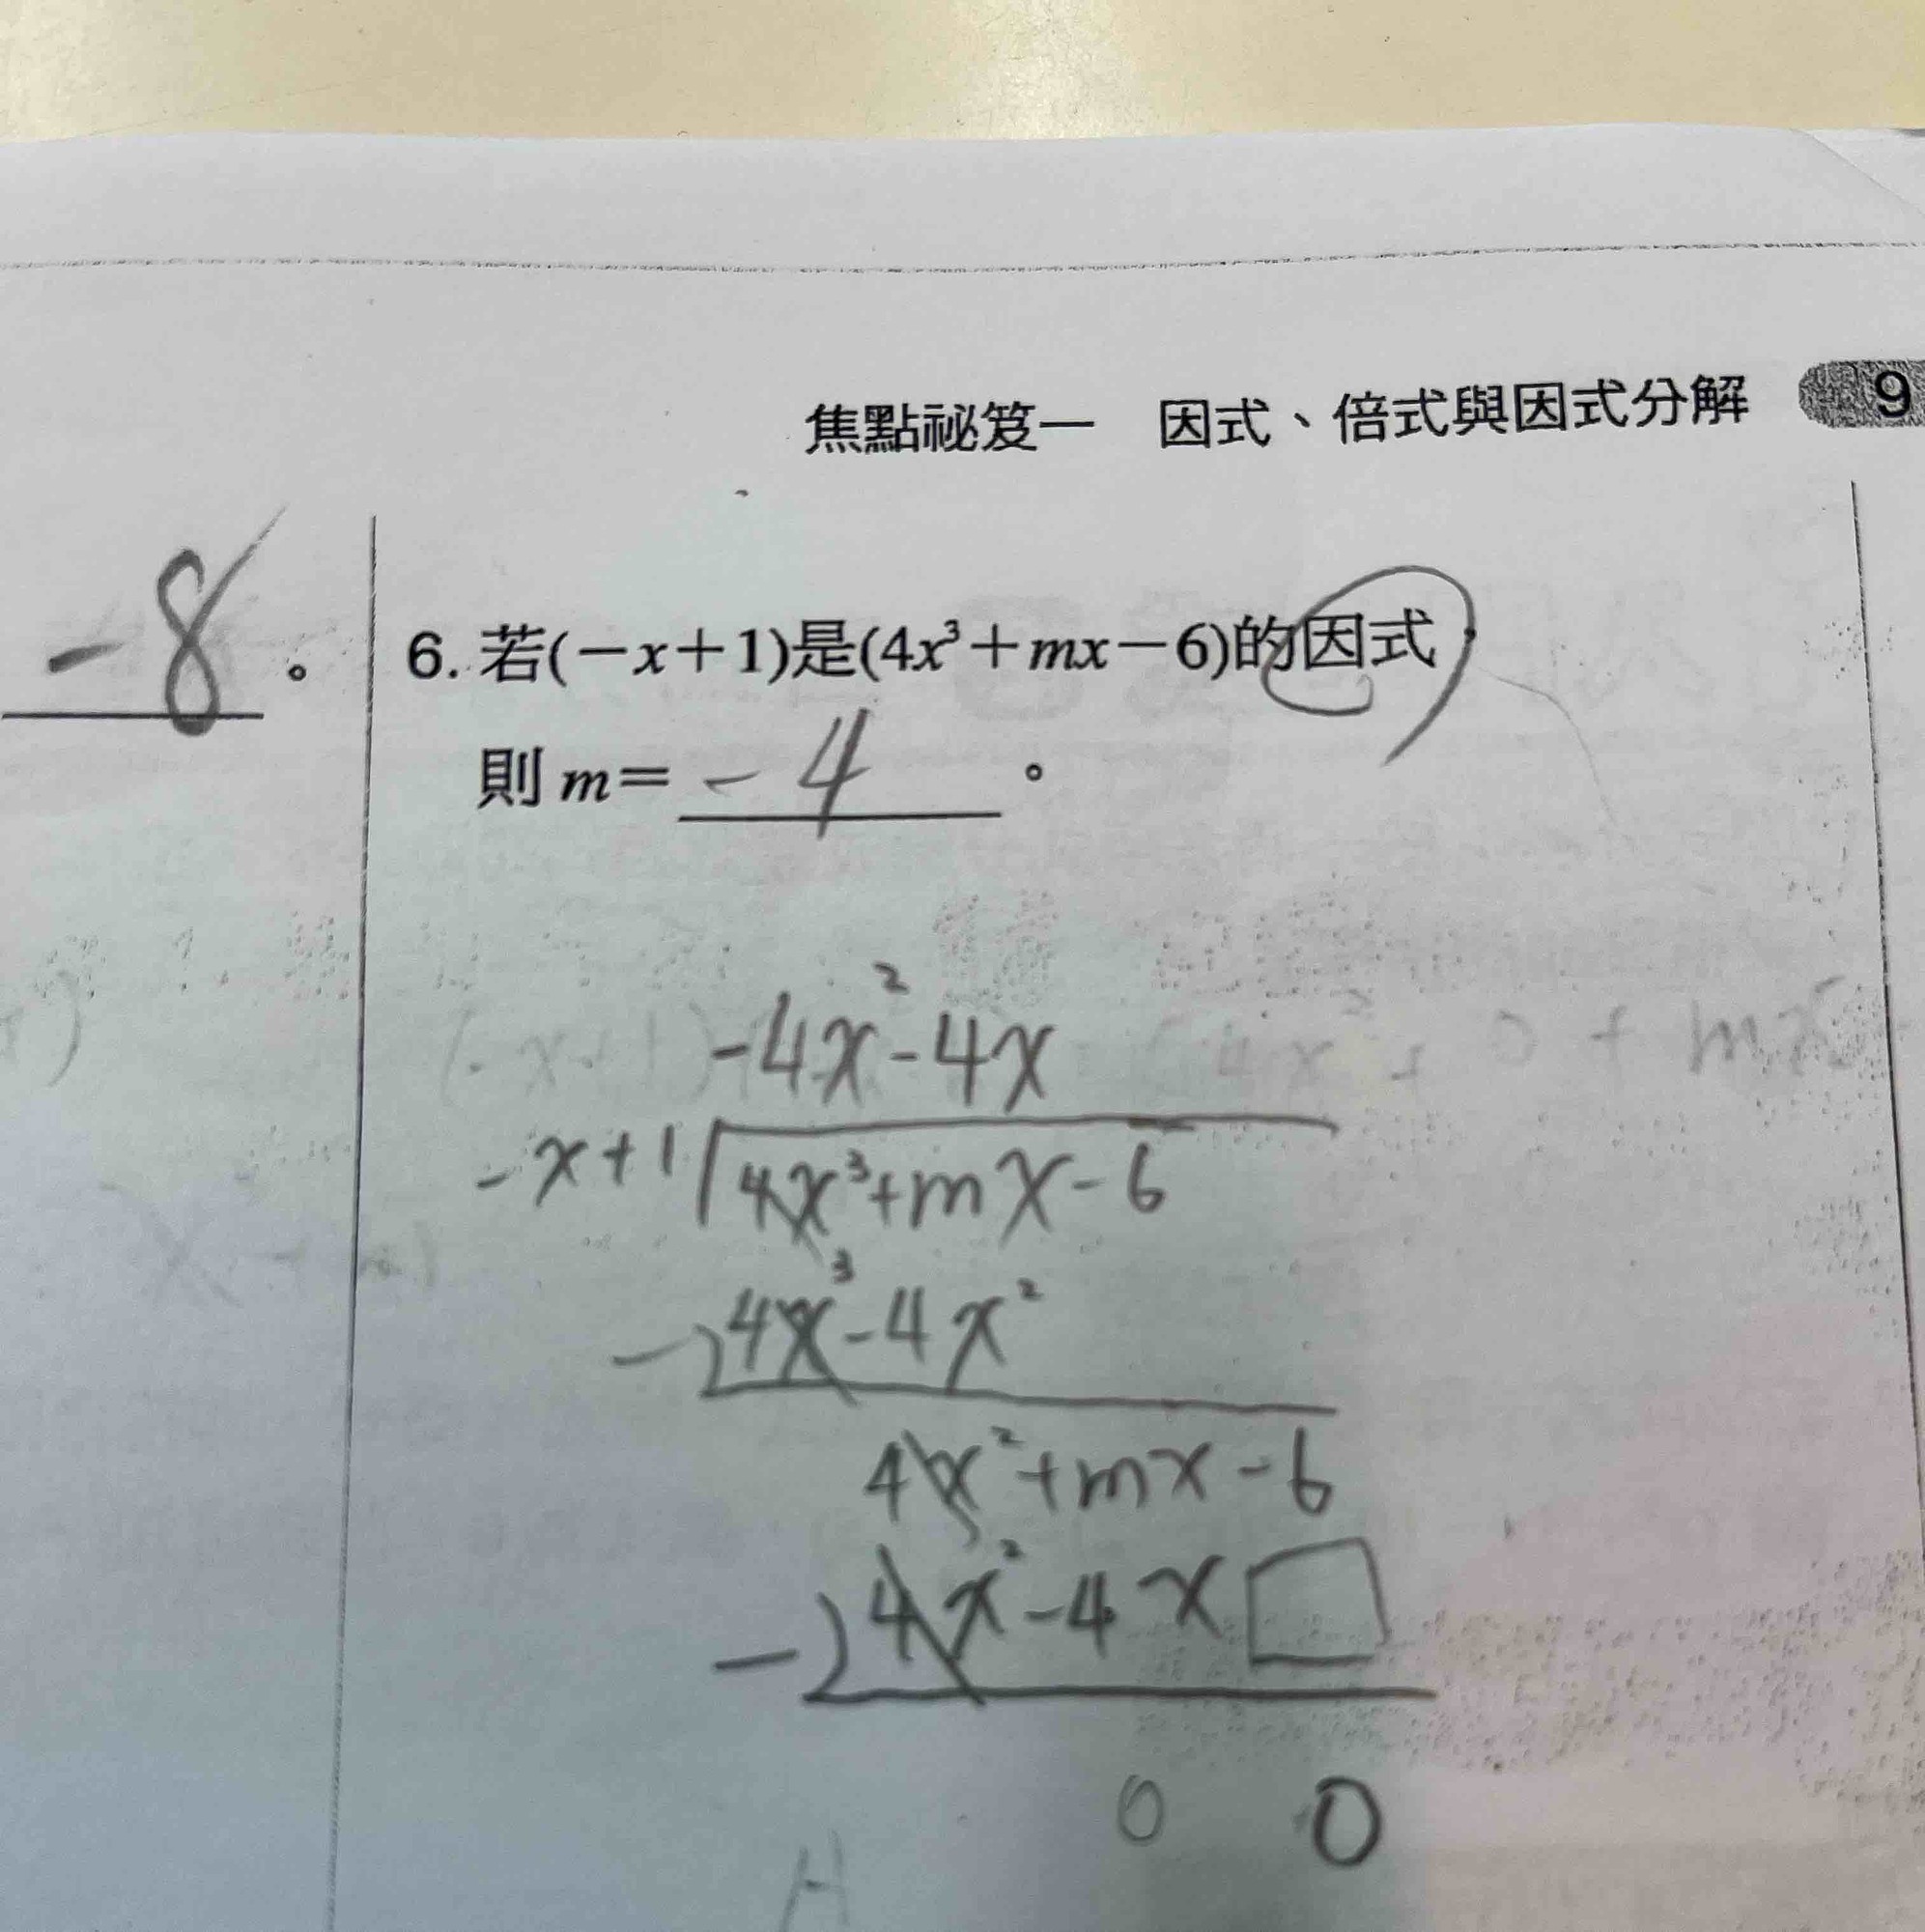 焦點祕笈一 因式、倍式與因式分解 9
-8。
6. 若(−x＋1)是(4x³＋mx−6)的因式，
則 m＝ -4 。
-4x²-4x
-x+1 4x³+mx-6
-) 4x³-4x²
4x²+mx-6
-) 4x²-4x□
0 0